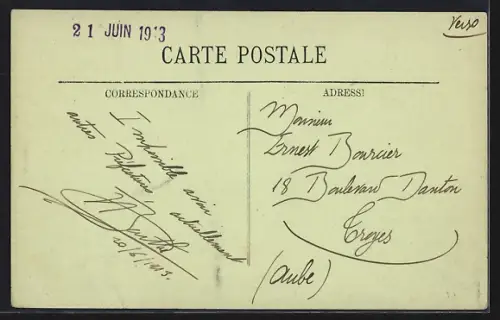 21 JUIN 1913
Verso
CARTE POSTALE
CORRESPONDANCE
ADRESSE
Impossible avoir
actuellement
autres Préfectures
20/6/1913.
Monsieur
Ernest Bourcier
18 Boulevard Danton
Troyes
(Aube)